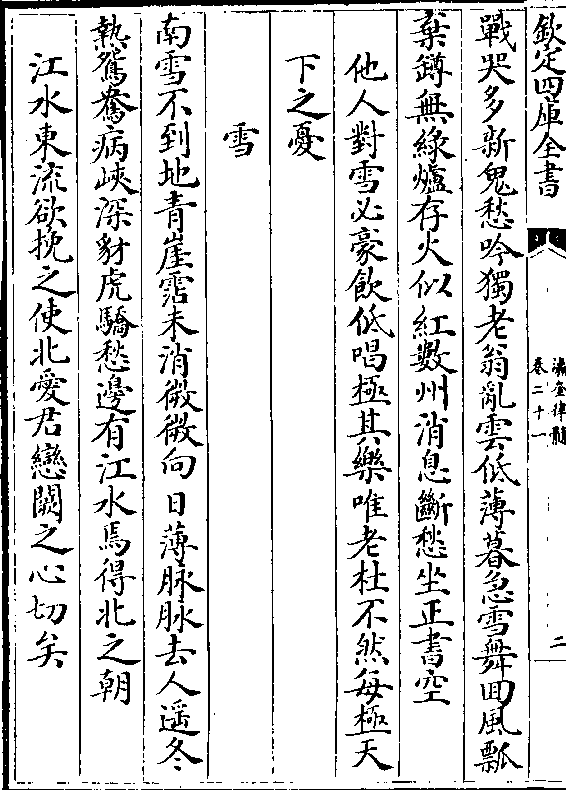 欽定四庫全書
瀛奎律髓
卷二十一
二
戰哭多新鬼愁吟獨老翁亂雲低薄暮急雪舞回風瓢
棄罇無綠爐存火似紅數州消息斷愁坐正書空
他人對雪必豪飲低唱極其樂唯老杜不然每極天
下之憂
雪
南雪不到地青崖霑未消微微向日薄脉脉去人遥冬
熱鴛鴦病峽深豺虎驕愁邊有江水焉得北之朝
江水東流欲挽之使北愛君戀闕之心切矣